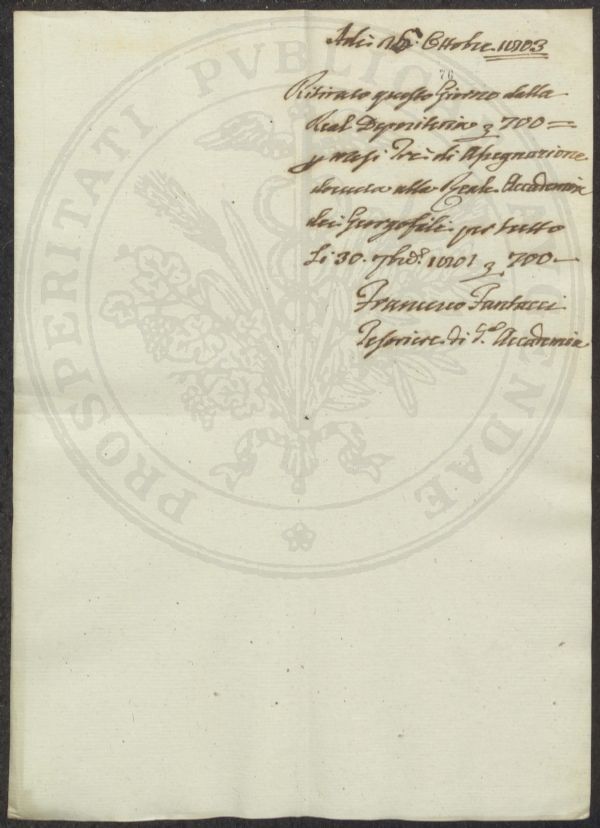 Adi 26. Ottobre. 1803
76
Ritirato questo Giorno dalla
Real Depositeria £ 700 =
p mesi Tre di Assegnazione
dovuta alla Reale Accademia
dei Georgofili per tutto
Li 30. 7bre. 1801 £. 700 —
Francesco Fantacci
Tesoriere di Sa. Accademia
PROSPERITATI PVBLICAE AVGENDAE